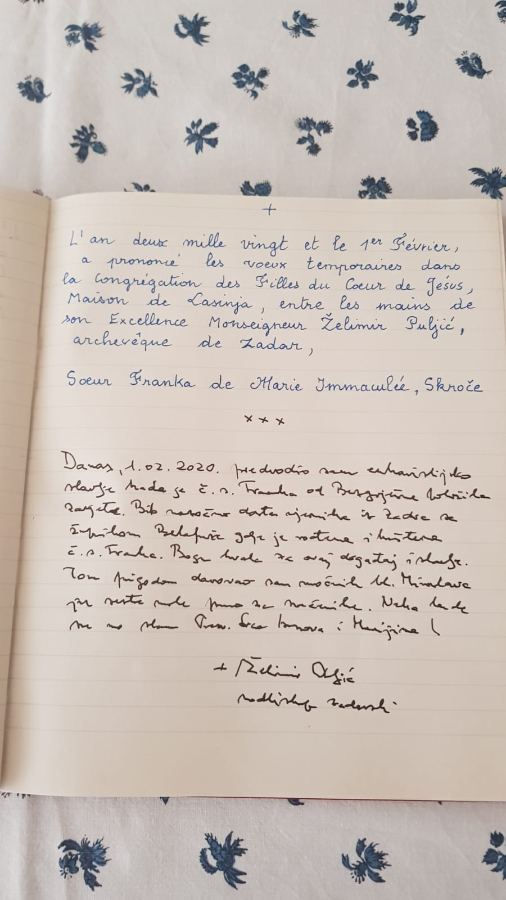 +
L'an deux mille vingt et le 1er Février,
a prononcé les voeux temporaires dans
la Congrégation des Filles du Coeur de Jésus,
Maison de Lasinja, entre les mains de
son Excellence Monseigneur Želimir Puljić,
archevêque de Zadar,
Soeur Franka de Marie Immaculée, Skroče
x x x
Danas, 1.02.2020. predvodio sam euharistijsko
slavlje kada je č. s. Franka od Bezgrješne položila
zavjete. Bilo nazočno dosta vjernika iz Zadra sa
župnikom gdje je rođena i krštena
č. s. Franka. Bogu hvala za ovaj događaj i slavlje.
Tom prigodom darovao sam moćnik bl. Miroslava
za Neka bude
sve na slavu Presv. Srca Isusova i Marijina!
+ Želimir Puljić
nadbiskup zadarski